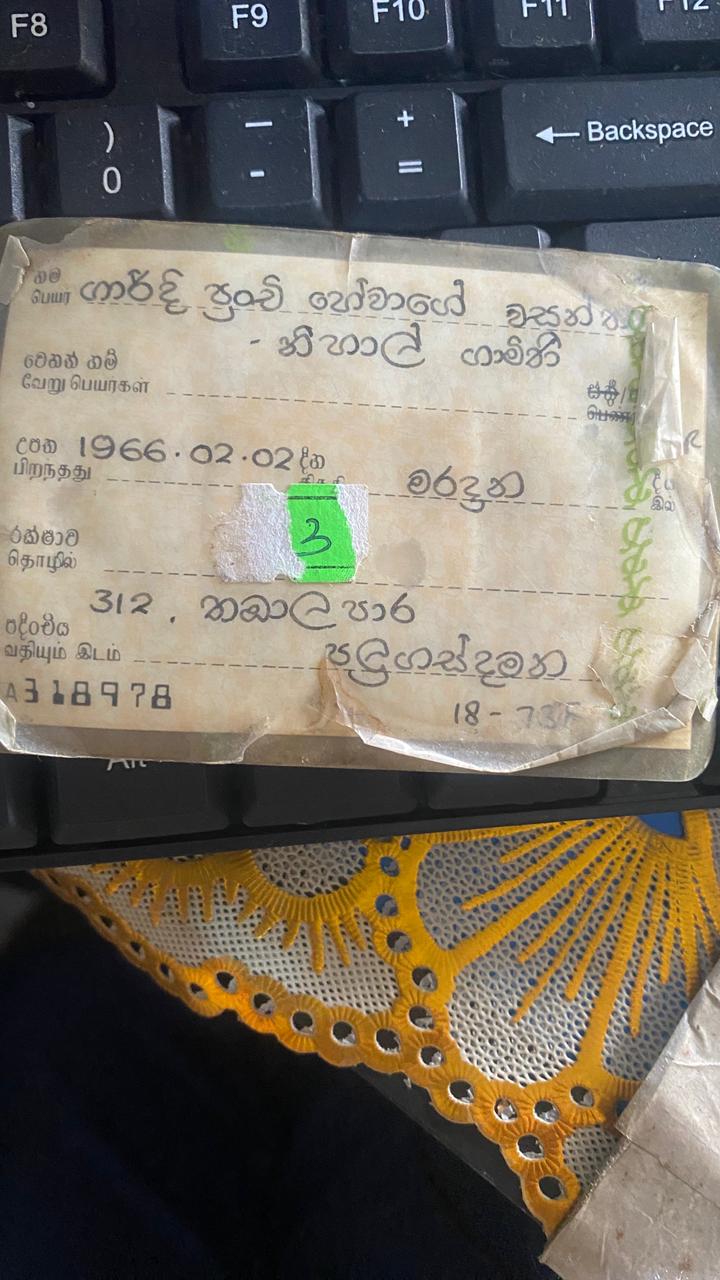 F8 F9 F10 F11 F12
) — +
0 - = ← Backspace
නම
பெயர் ගාර්දි පුංචි හේවාගේ වසන්ත
- නිහාල් ගාමිණී
වෙනත් නම්
வேறு பெயர்கள்
ස්ත්‍රී/
பெண்/
උපන 1966.02.02 දින
பிறந்தது මරදාන දීය
இல்
3
රක්ෂාව
தொழில்
312. තඹාල පාර
පදිංචිය
வதியும் இடம் පලුගස්දමන
A318978
18-
Alt